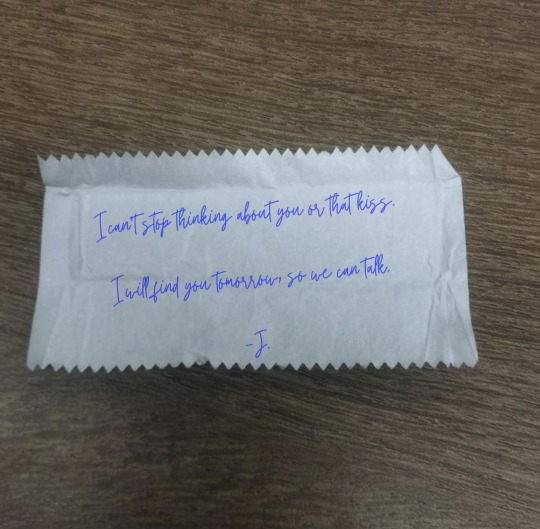 I can't stop thinking about you or that kiss.
I will find you tomorrow, so we can talk.
-J.